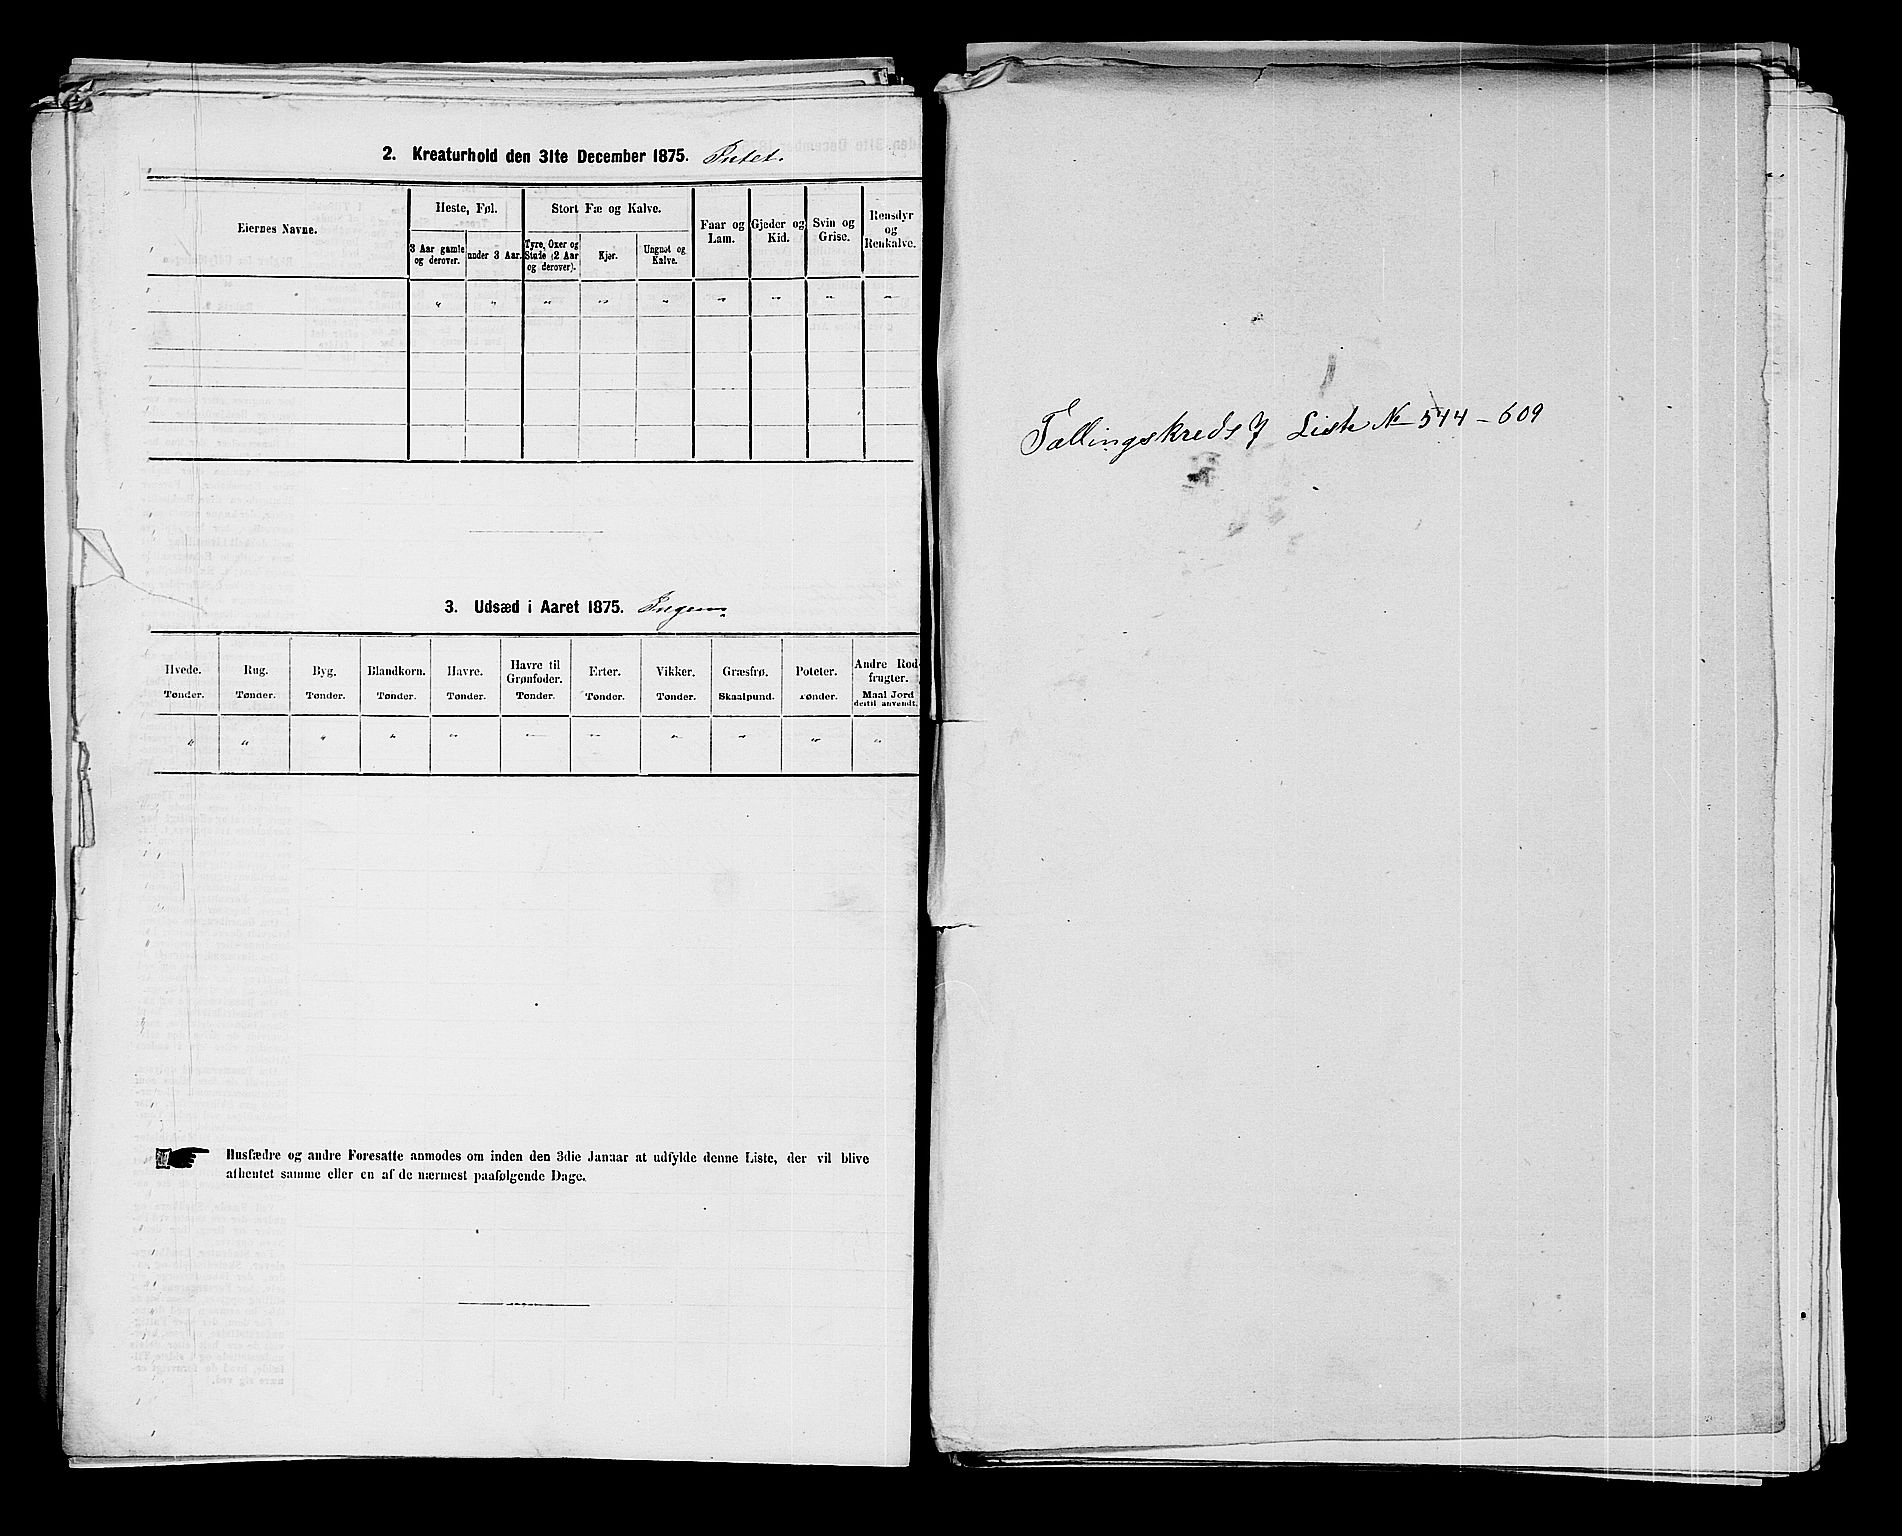 2. Kreaturhold den 31te December 1875. Intet.
Eiernes Navne.
Heste, Føl.
Stort Fæ og Kalve.
Faar og Lam.
Gjeder og Kid.
Svin og Grise.
Rensdyr og Renkalve.
3 Aar gamle og derover.
under 3 Aar.
Tyre, Oxer og Stude (2 Aar og derover).
Kjør.
Ungnøt og Kalve.
" " " " " " " " "
3. Udsæd i Aaret 1875. Ingen
Hvede. Rug. Byg. Blandkorn. Havre. Havre til Grønfoder. Erter. Vikker. Græsfrø. Poteter. Andre Rodfrugter.
Tønder. Tønder. Tønder. Tønder. Tønder. Tønder. Tønder. Tønder. Skaalpund. Tønder. Maal Jord dertil anvendt.
" " " " " " " " " " "
Husfædre og andre Foresatte anmodes om inden den 3die Januar at udfylde denne Liste, der vil blive
afhentet samme eller en af de nærmest paafølgende Dage.
Tællingskreds 7 Liste No 544-609